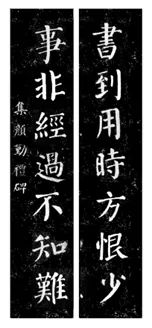 書到用時方恨少
事非經過不知難
集顏勤禮碑